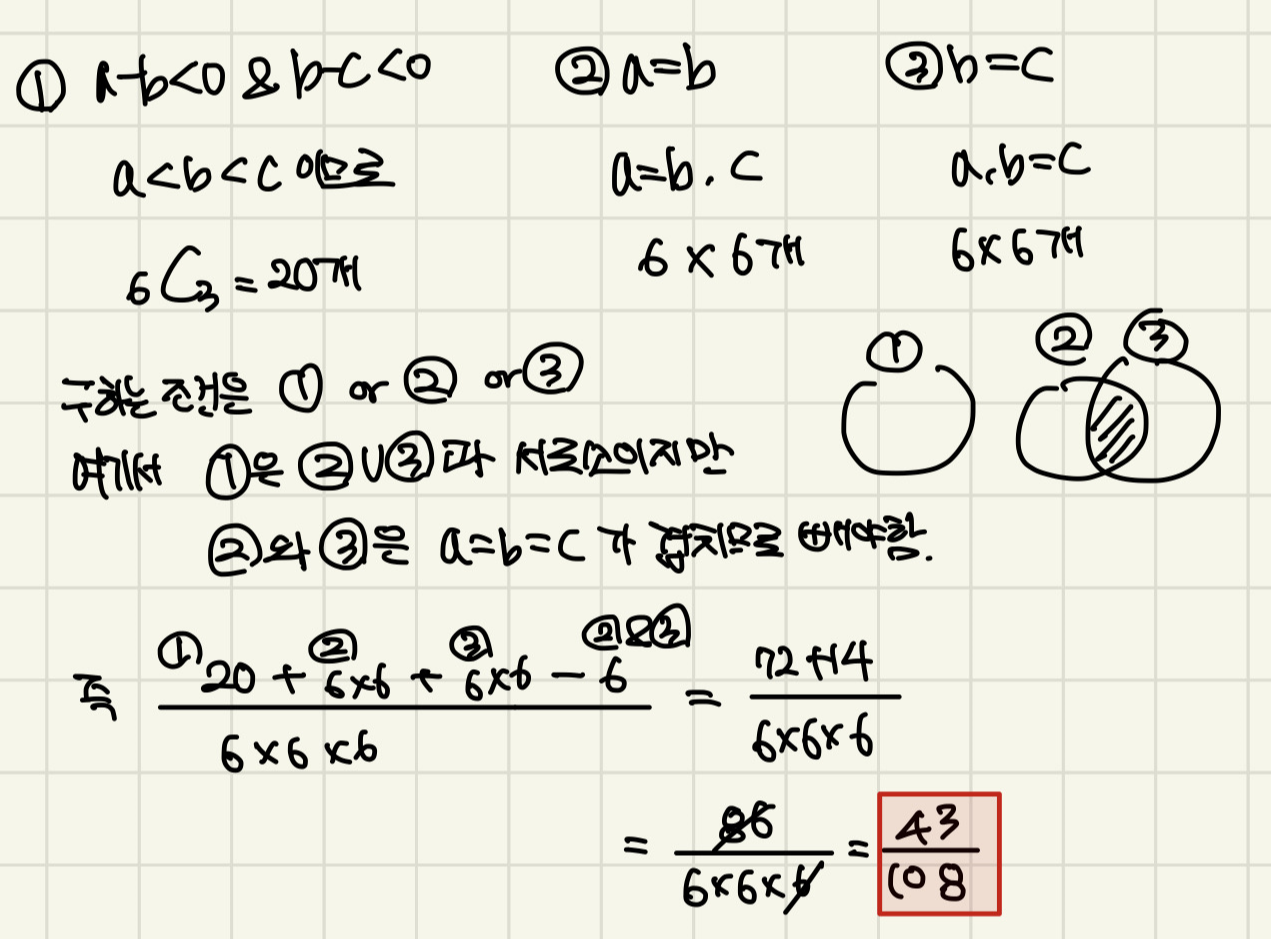 ① a-b<0 & b-c<0 ② a=b ③ b=c
a<b<c 이므로 a=b, c a, b=c
₆C₃ = 20개 6 × 6개 6×6개
구하는 조건은 ① or ② or ③ ① ② ③
여기서 ①은 ②∪③과 서로소이지만
②와 ③은 a=b=c 가 겹치므로 빼야함.
① ② ③ ②&③
즉 20 + 6×6 + 6×6 - 6 / 6×6×6 = 72+14 / 6×6×6
= 86 / 6×6×6 = 43 / 108